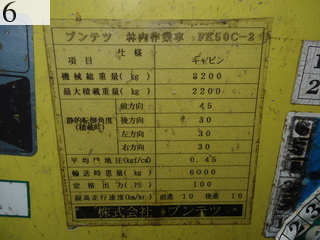 6
ブンテツ 林内作業車 FK50C-2
仕様
項目 キャビン
機械総重量(kg) 8200
最大積載重量(kg) 2200
静的転倒角度(積載時) 前方向 45
後方向 30
左方向 30
右方向 30
平均接地圧(kgf/cm) 0.45
輸送時重量(kg) 6000
定格出力(PS) 100
最高走行速度(km/hr) 前進 10 後進 10
株式会社 ブンテツ